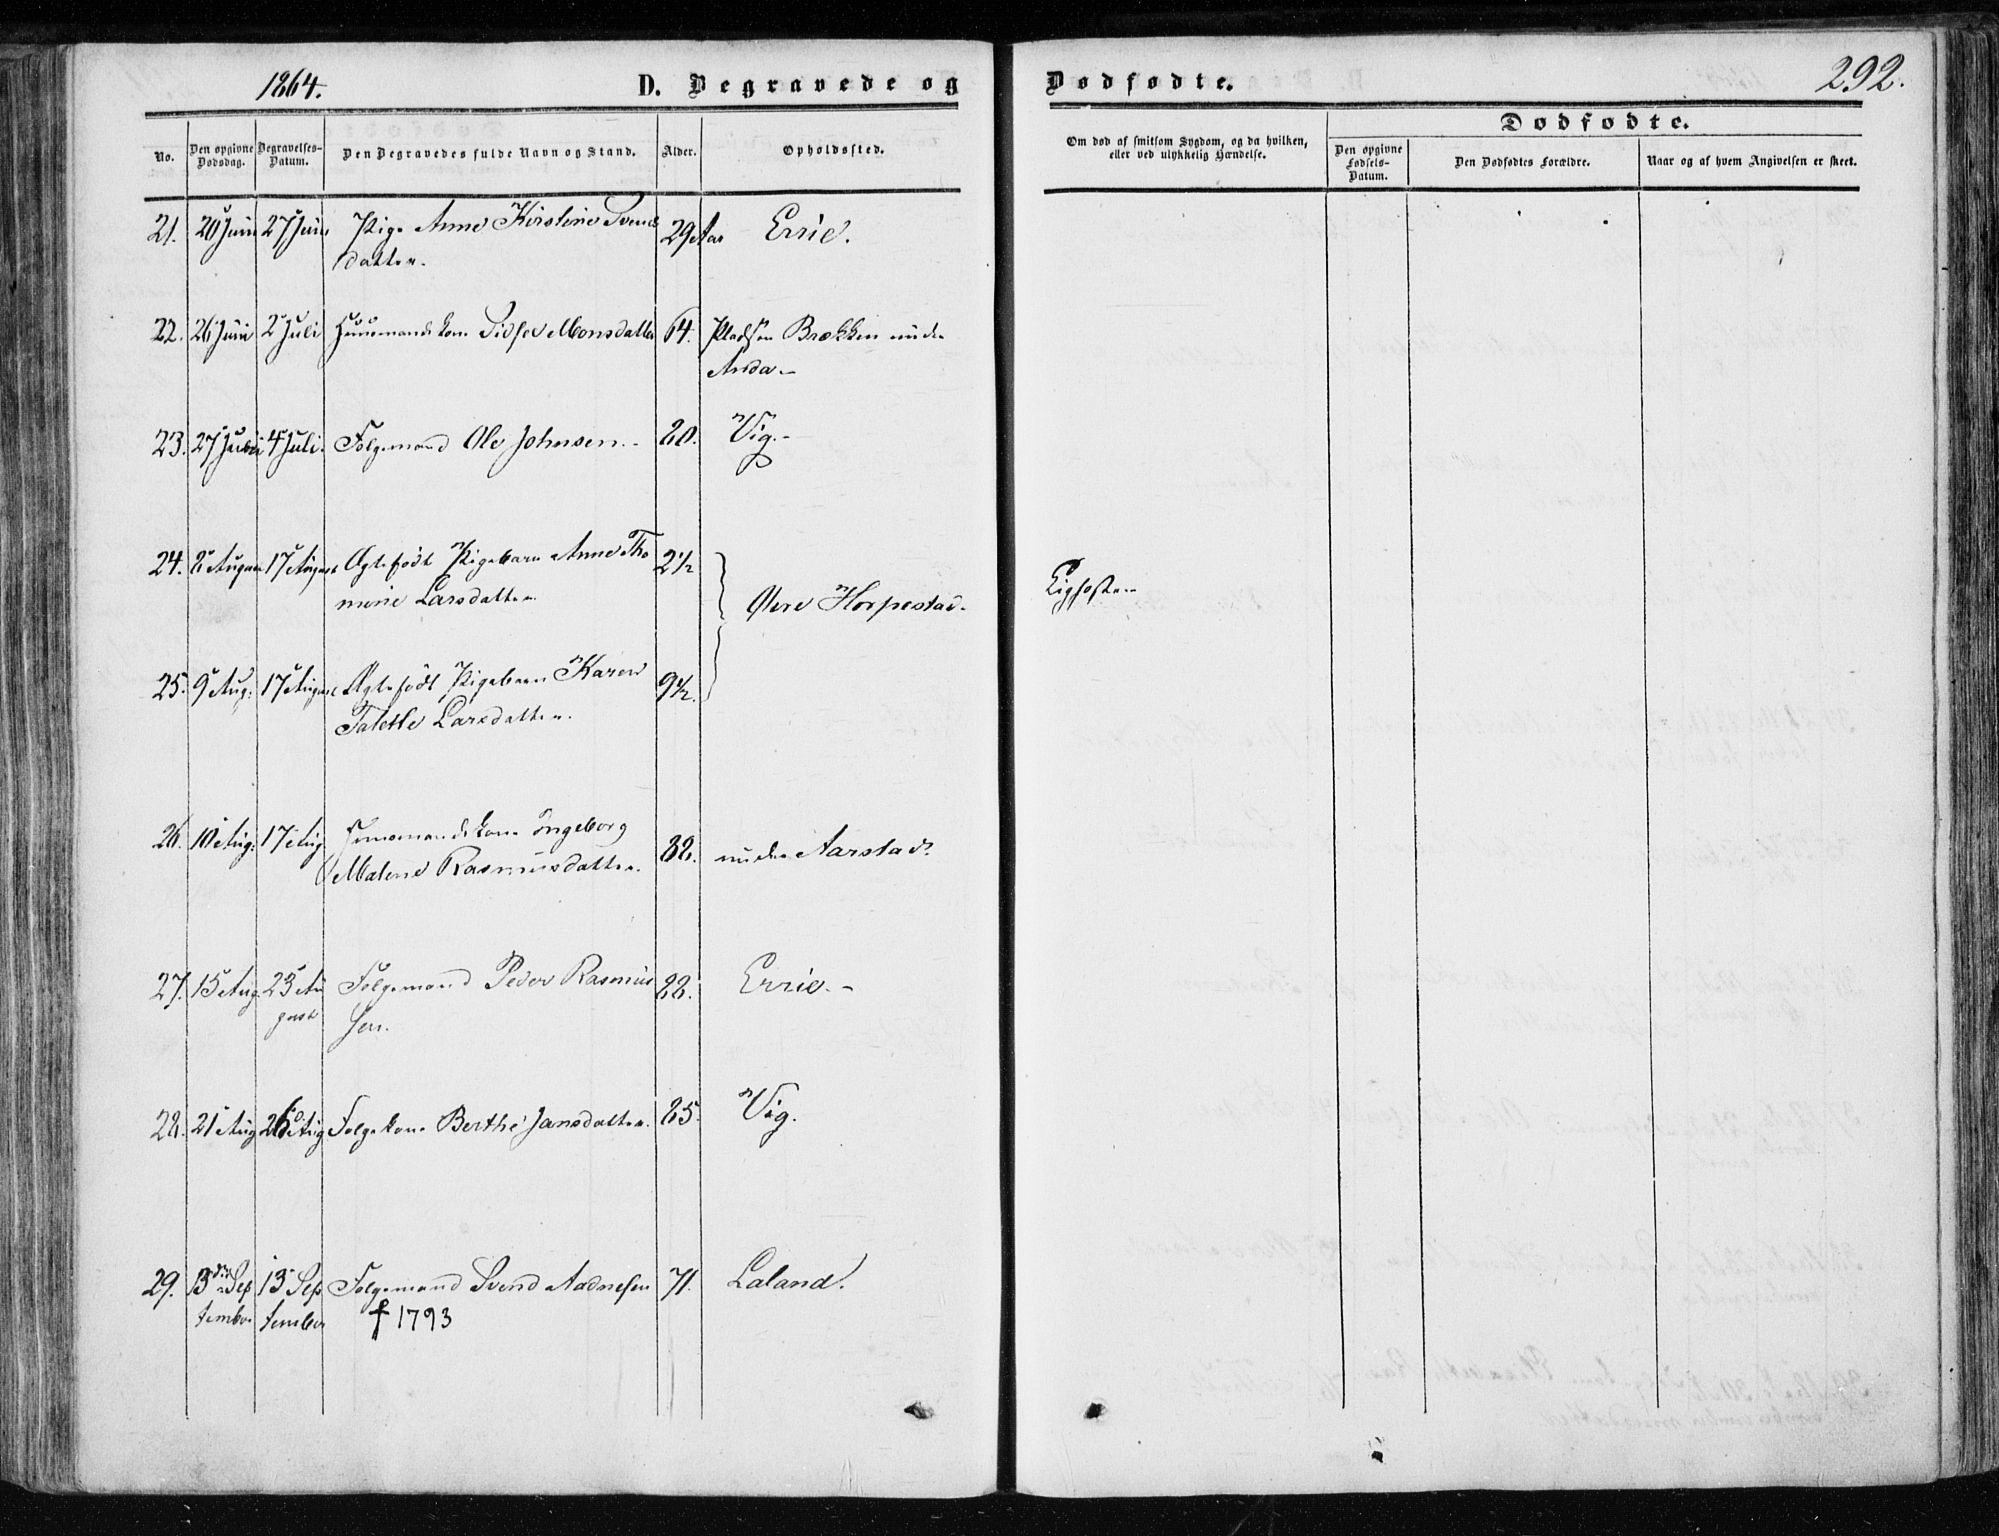 1864.
D. Begravede og Dødfødte.
292.
No.
Den opgivne Dødsdag.
Begravelses-Datum.
Den Begravedes fulde Navn og Stand.
Alder.
Opholdssted.
Om død af smitsom Sygdom, og da hvilken,
eller ved ulykkelig Hændelse.
Dødfødte.
Den opgivne Fødsels-Datum.
Den Dødfødtes Forældre.
Naar og af hvem Angivelsen er skeet.
21. 20 Juni 27 Juni Pige Anne Kirstine Svends 29 Aar Errie.
datter.
22. 26 Juni 2 Juli Huusmandskone Sidsel Monsdatter 64. Pladsen Brekken under
Anda.
23. 27 Juni 4 Juli. Folgemand Ole Johnsen. 80. Vig.
24. 8 August 17 August Ægtefødt Pigebarn Anne Tho 2½
mine Larsdatter
Øvre Horpestad.
Kighoste
25. 9 Aug: 17 August Ægtefødt Pigebarn Karen 9½.
Talette Larsdatter.
26. 10 Aug: 17 Aug Huusmandskone Ingeborg
Malene Rasmusdatter. 38. under Aarstad.
27. 15 Aug. 23 Au Folgemand Peder Rasmus 88. Errie.
gust sen.
28. 21 Aug 26 Aug Folgekone Berthe Jansdatter. 85. Vig.
29. 3die Sep 13 Sep Folgemand Svend Aadnesen 71. Laland.
tember tember f 1793